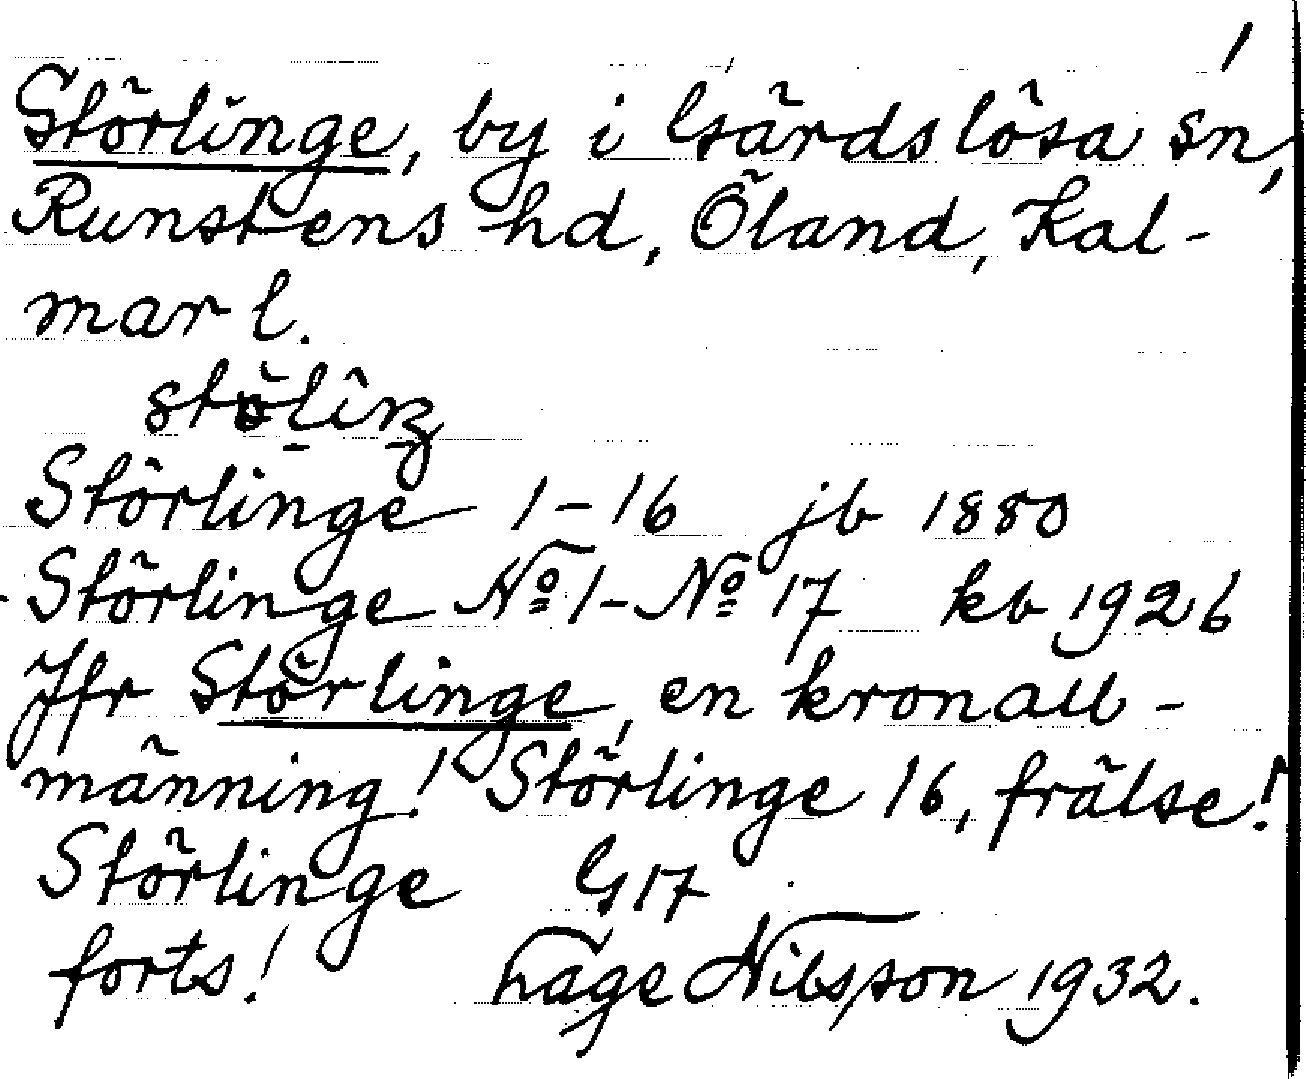 1
Störlinge, by i Gärdslösa sn,
Runstens hd, Öland, Kal-
mar l.
Störlinge 1-16 jb 1880
Störlinge No 1-No 17 kb 1926
Jfr Störlinge, en kronall-
männing! Störlinge 16, frälse!
Störlinge G17
forts! Tage Nilsson 1932.